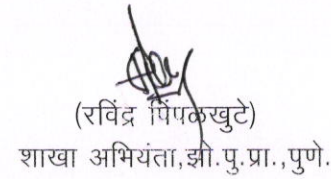 (रविंद्र पिंपळखुटे)
शाखा अभियंता,झो.पु.प्रा.,पुणे.